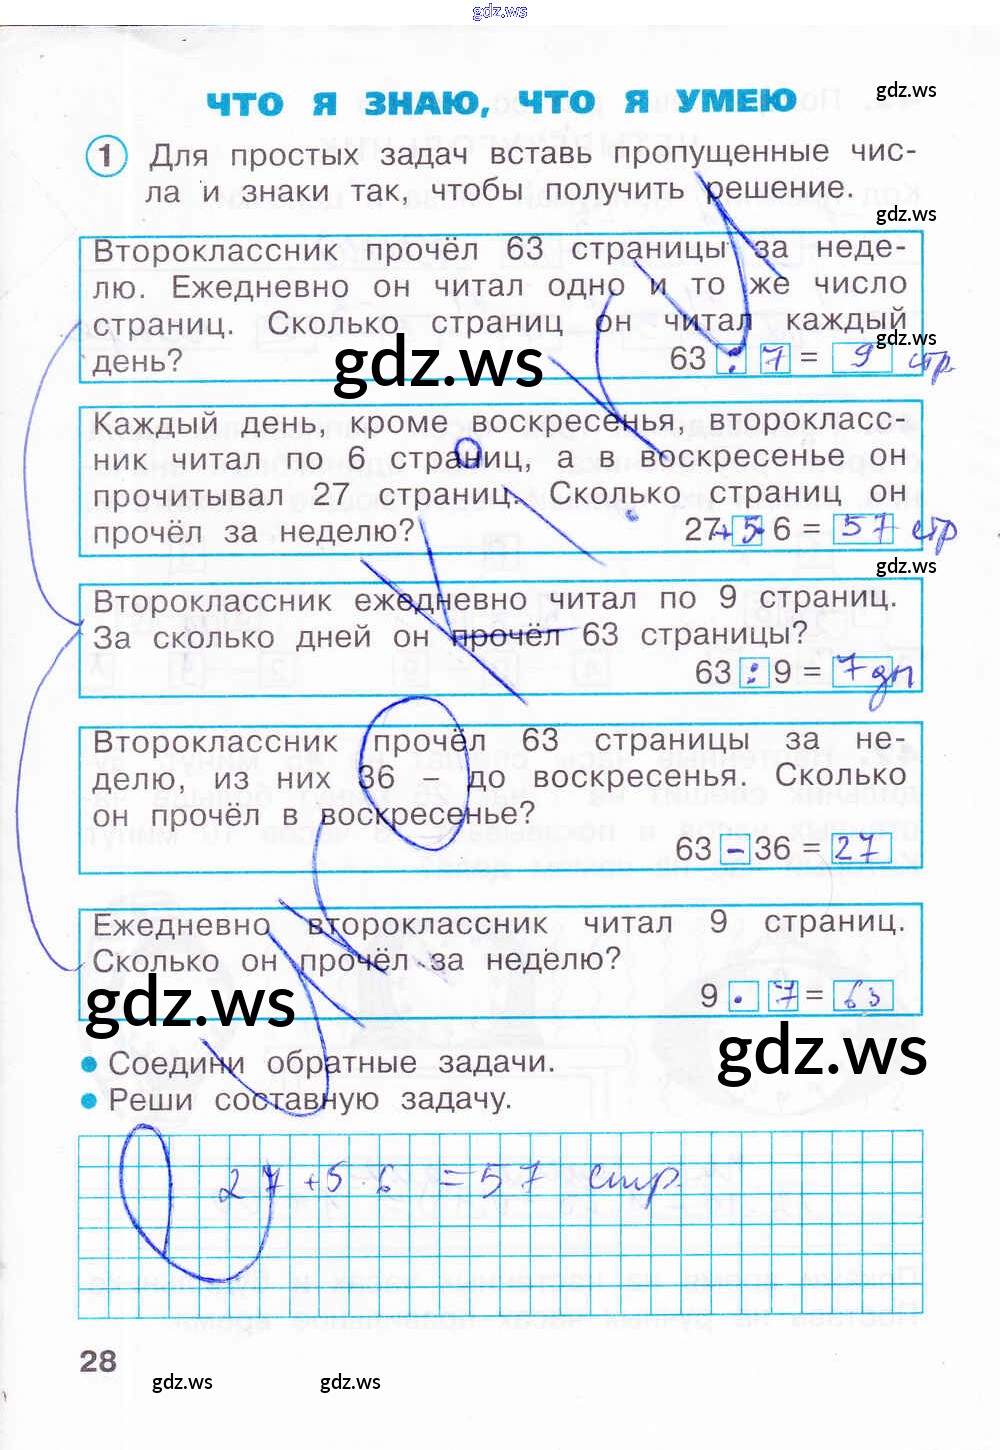 gdz.ws
ЧТО Я ЗНАЮ, ЧТО Я УМЕЮ
gdz.ws
1 Для простых задач вставь пропущенные чис-
ла и знаки так, чтобы получить решение.
gdz.ws
Второклассник прочёл 63 страницы за неде-
лю. Ежедневно он читал одно и то же число
страниц. Сколько страниц он читал каждый
gdz.ws
день? 63 : 7 = 9 стр
gdz.ws
Каждый день, кроме воскресенья, второкласс-
ник читал по 6 страниц, а в воскресенье он
прочитывал 27 страниц. Сколько страниц он
прочёл за неделю? 27 + 5 · 6 = 57 стр
gdz.ws
Второклассник ежедневно читал по 9 страниц.
За сколько дней он прочёл 63 страницы?
63 : 9 = 7 дн
Второклассник прочёл 63 страницы за не-
делю, из них 36 – до воскресенья. Сколько
он прочёл в воскресенье?
63 - 36 = 27
Ежедневно второклассник читал 9 страниц.
Сколько он прочёл за неделю?
9 · 7 = 63
gdz.ws
gdz.ws
● Соедини обратные задачи.
● Реши составную задачу.
27 + 5 · 6 = 57 стр.
28
gdz.ws gdz.ws